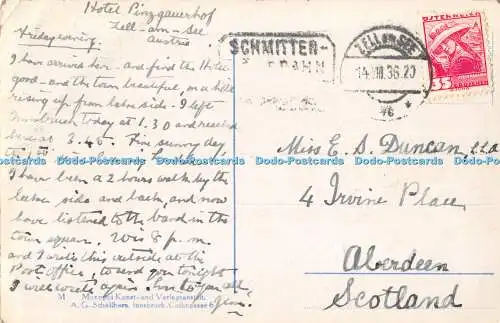 Hotel Pinzgauerhof
Zell-am-See
Austria
Friday evening.
I have arrived here - and find the Hotel
good - and the town beautiful, on a hill
rising up from lake side. I left
Innsbruck today at 1.30 and reached
here at 3.45. Fine sunny day
I have been a 2 hours walk by the
lake side and back, and now
have listened to the band in the
town square. 8 p.m.
and I write this outside at the
Post Office, to send you tonight
I will write again. love to you all,
M Monopol Kunst- und Verlagsanstalt,
A. G. Schallhorn, Innsbruck, Colingasse 6
SCHMITTEN-
BAHN
ZELL AM SEE
14.VIII.36.20
ÖSTERREICH
35
GROSCHEN
Miss E. S. Duncan, L.L.A
4 Irvine Place,
Aberdeen
Scotland
Dodo-Postcards Dodo-Postcards Dodo-Postcards Dodo-Postcards